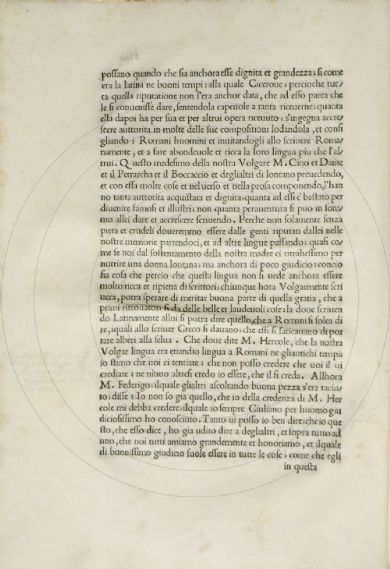 possano quando che sia anchora esse dignita et grandezza: si come
era la latina ne buoni tempi: alla quale Cicerone: percioche tut,
ta quella riputatione non l'era anchor data, che ad esso parea che
le si convenisse dare, sentendola capevole a tanta ricevere: quanta
ella dapoi ha per sua et per altrui opera ricevuto: s'ingegna accre,
scere auttorita in molte delle sue compositioni lodandola, et consi
gliando i Romani huomini et invitandogli allo scrivere Roma,
namente, et a fare abondevole et ricca la loro lingua piu che l'al,
trui. Questo medesimo della nostra Volgare M. Cino et Dante
et il Petrarcha et il Boccaccio et deglialtri di lontano prevedendo,
et con essa molte cose et nel verso et nella prosa componendo, l'han
no tanta auttorita acquistata et dignita: quanta ad essi e bastato per
divenire famosi et illustri: non quanta peraventura si puo in som,
mo allei dare et accrescere scrivendo. Perche non solamente senza
pieta et crudeli doveremmo essere dalle genti riputati dallei nelle
nostre memorie partendoci, et ad altre lingue passando: quasi co,
me se noi dal sostentamento della nostra madre ci ritrahessimo per
nutrire una donna lontana: ma anchora di poco giudicio: concio
sia cosa che percio che questa lingua non si vede anchora essere
molto ricca et ripiena di scrittori: chiunque hora Volgarmente scri
vera, potra sperare di meritar buona parte di quella gratia, che a
primi ritrovatori si da delle belle et laudevoli cose: la dove scriven
do Latinamente allui si potra dire quello, che a Romani si solea di
re, iquali allo scriver Greco si davano: che essi si faticavano di por
tare alberi alla selva. Che dove dite M. Hercole, che la nostra
Volgar lingua era etiandio lingua a Romani ne gliantichi tempi:
io stimo che voi ci tentiate: che non posso credere che voi il vi
crediate: ne niuno altresi credo io essere, che il si creda. Allhora
M. Federigo: ilquale glialtri ascoltando buona pezza s'era taciu,
to: disse: Io non so gia quello, che io della credenza di M. Her
cole mi debba credere: ilquale io sempre Giuliano per huomo giu
diciosissimo ho conosciuto. Tanto vi posso io ben dire: che io que
sto, che esso dice, ho gia udito dire a deglialtri, et sopra tutto ad
uno, che noi tutti amiamo grandemente et honoriamo, et ilquale
di buonissimo giudicio suole essere in tutte le cose: come che egli
in questa